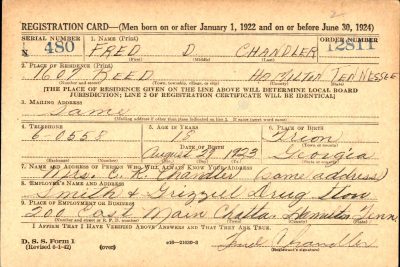 REGISTRATION CARD—(Men born on or after January 1, 1922 and on or before June 30, 1924)
SERIAL NUMBER 1. NAME (Print) ORDER NUMBER
N 480 FRED D CHANDLER 12811
(First) (Middle) (Last)
2. PLACE OF RESIDENCE (Print)
1607 REED HAMILTON TENNESSEE
(Number and street) (Town, township, village, or city) (County) (State)
[THE PLACE OF RESIDENCE GIVEN ON THE LINE ABOVE WILL DETERMINE LOCAL BOARD
JURISDICTION; LINE 2 OF REGISTRATION CERTIFICATE WILL BE IDENTICAL]
3. MAILING ADDRESS
Same
[Mailing address if other than place indicated on line 2. If same insert word same]
4. TELEPHONE 5. AGE IN YEARS 6. PLACE OF BIRTH
6-0558 18
DATE OF BIRTH
August 27 1923 Georgia
7. NAME AND ADDRESS OF PERSON WHO WILL ALWAYS KNOW YOUR ADDRESS
Mrs. Chandler (same address)
8. EMPLOYER'S NAME AND ADDRESS
Smith & Grizzel Drug Store
9. PLACE OF EMPLOYMENT OR BUSINESS
200 East Main Chatta. Hamilton Tenn.
(Number and street or R. F. D. number) (Town) (County) (State)
I AFFIRM THAT I HAVE VERIFIED ABOVE ANSWERS AND THAT THEY ARE TRUE.
D. S. S. Form 1
(Revised 6-1-42) (over) 16—21630-2 Fred Chandler